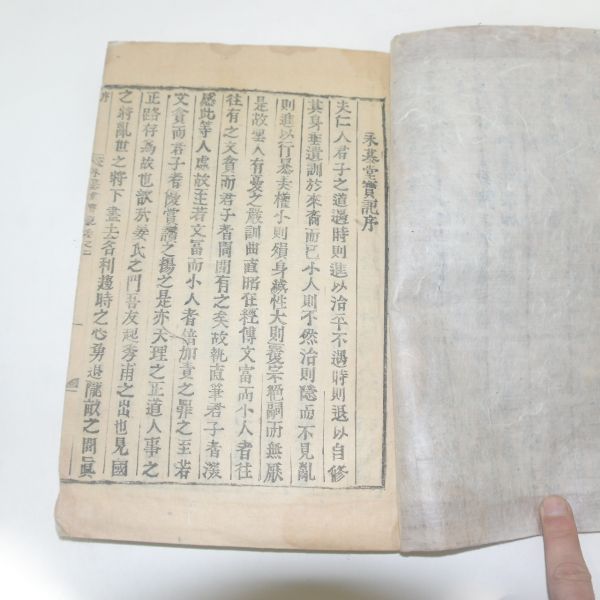 永慕堂實記序
夫仁人君子之道遇時則進以治平不遇時則退以自修
其身垂遺訓於來裔而已小人則不然治則隱而不見亂
則進以行暴去權小則殞身滅性大則覆宗絶嗣而無厭
是故聖人有憂之嚴訓曲直昭在經傳文富而小人者往
往有之文貧而君子者間間有之矣故執直筆君子者深
感此等人處故至若文富而小人者倍加責之罪之至若
文貧而君子者後賞讚之揚之是亦天理之正道人事之
正路存焉故也歟於姜氏之門吾友起秀甫之出也見國
之將亂世之將下盡去名利趨時之心勇退隴畝之間眞
序